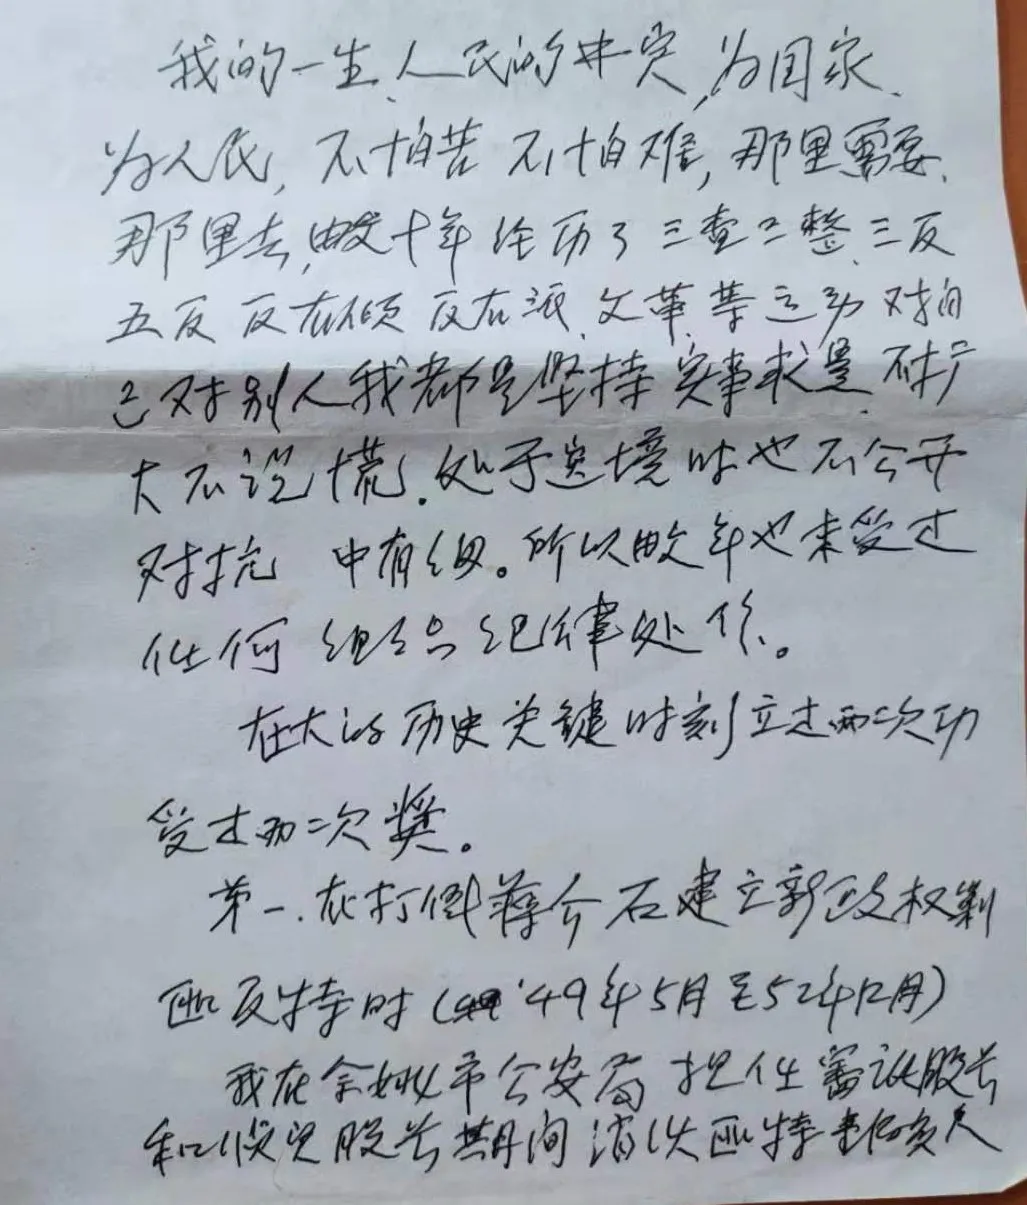 我的一生、人民的 为国家、
为人民, 不怕苦 不怕难, 那里需要、
那里去, 十年 经历了 三查三整、三反
五反 反右倾 反右派、文革、等运动 对自
己对别人我都是坚持 实事求是、不扩
大不说慌。处于 境时也不公开
对抗 所以 年也未受过
任何 组织纪律处份。
在大的历史关键时刻立过两次功
受过两次奖。
第一、在打倒蒋介石建立新政权剿
匪反特时 ( '49年5月至52年12月)
我在余姚市公安局 担任审讯股长
和侦察股长期间 消灭匪特